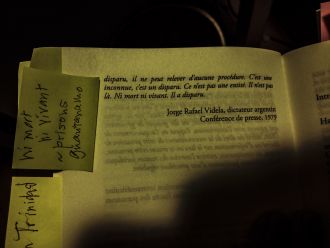 disparu, il ne peut relever d'aucune procédure. C'est une
inconnue, c'est un disparu. Ce n'est pas une entité. Il n'est pas
là. Ni mort ni vivant. Il a disparu.
Jorge Rafael Videla, dictateur argentin
Conférence de presse, 1979
ni mort
ni vivant
~ prisons
guantanamo
n Trinidad
Inte